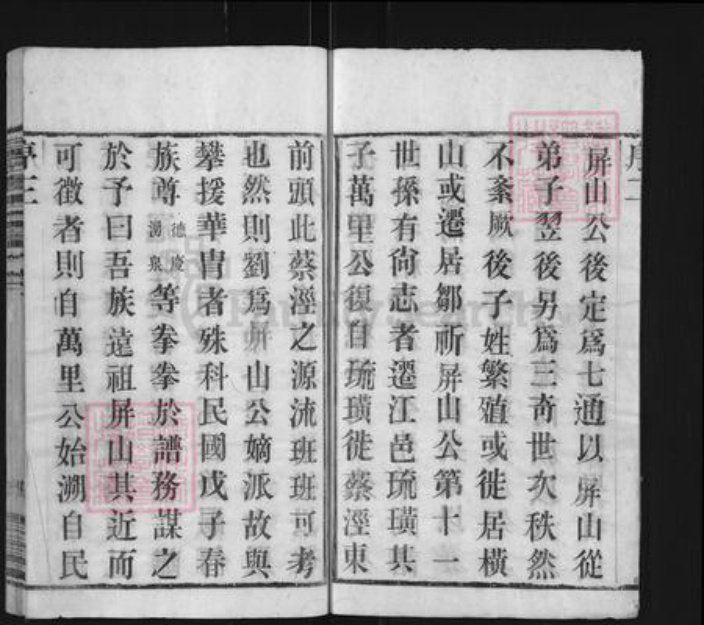 序二
屏山公後定爲七通以屏山從
弟子翌後另爲三奇世次秩然
不紊厥後子姓繁殖或徙居橫
山或遷居鄒祈屏山公第十一
世孫有尙志者遷江邑琉璜其
子萬里公復自琉璜徙蔡涇東
前頭此蔡涇之源流班班可考
也然則劉爲屏山公嫡派故與
攀援華胄者殊科民國戊子春
族尊德峻湧泉等拳拳於譜務謀之
於予曰吾族遠祖屏山其近而
可徵者則自萬里公始溯自民
序三
FamilySearch